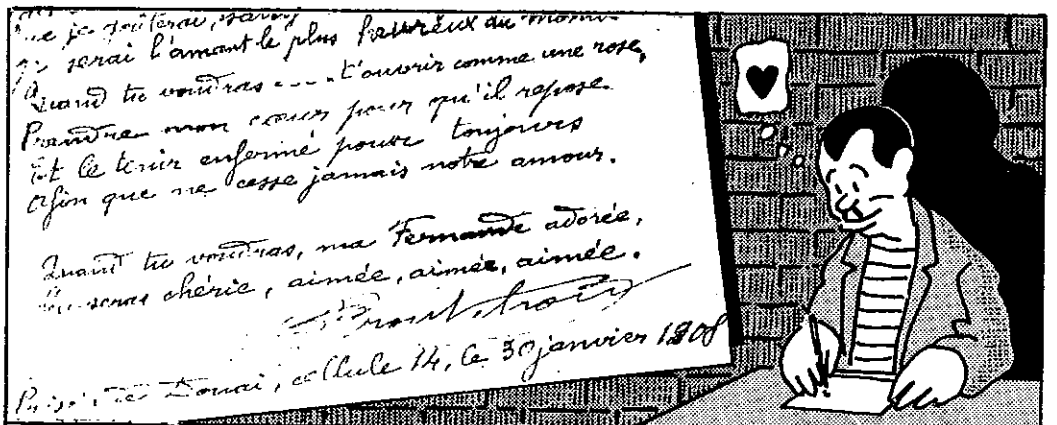 que je goûterai,
je serai l'amant le plus heureux du
Quand tu voudras .... t'ouvrir comme une rose,
Prendre mon cœur pour qu'il repose
Et le tenir enfermé pour toujours
Afin que ne cesse jamais notre amour.
Quand tu voudras, ma Fernande adorée,
Tu seras chérie, aimée, aimée, aimée.
Prison de Douai, cellule 14, le 30 janvier 1908